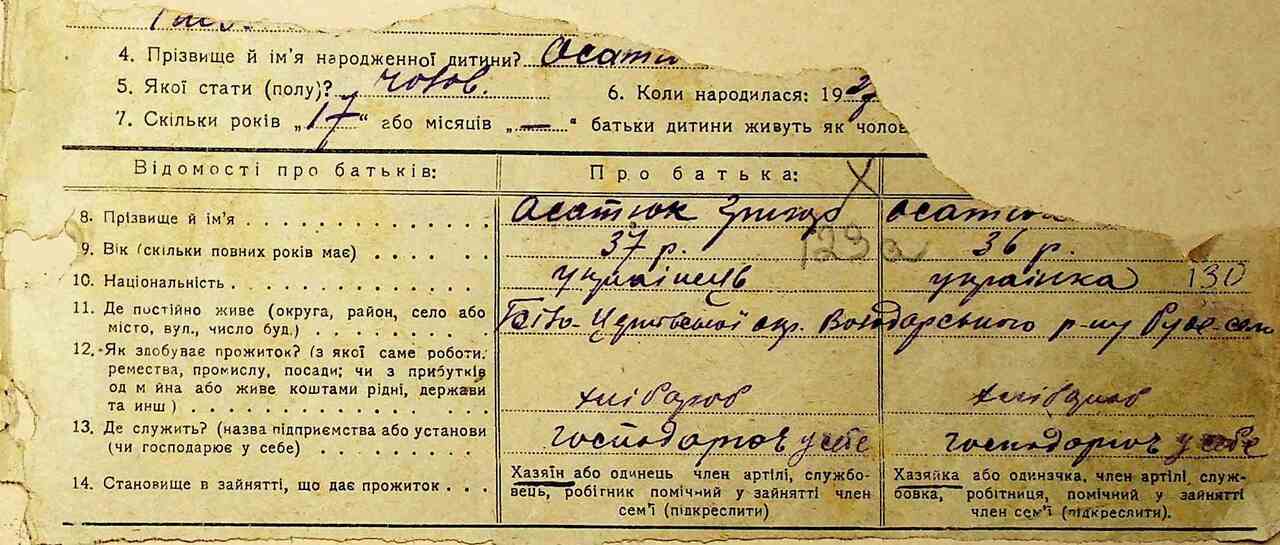 4. Прізвище й ім'я народженної дитини? Осатю
5. Якої стати (полу)? чолов. 6. Коли народилася: 192
7. Скільки років „17“ або місяців „—“ батьки дитини живуть як чолов
Відомості про батьків: Про батька:
8. Прізвище й ім'я Осатюк Григор Осатюк
9. Вік (скільки повних років має) 37 р. 129а 36 р.
10. Національність українець українка 130
11. Де постійно живе (округа, район, село або
місто, вул., число буд.) Біло-Церківської окр. Володарського р-ну Руде-село
12. Як здобуває прожиток? (з якої саме роботи,
ремества, промислу, посади; чи з прибутків
од майна або живе коштами рідні, держави
та инш) хлібороб хлібороб
13. Де служить? (назва підприємства або установи
(чи господарює у себе) господарює у себе господарює у себе
14. Становище в зайнятті, що дає прожиток
Хазяїн або одинець член артілі, службо-
вець, робітник помічний у зайнятті член
сем'ї (підкреслити)
Хазяйка або одиначка, член артілі, служ-
бовка, робітниця, помічний у зайнятті
член сем'ї (підкреслити).